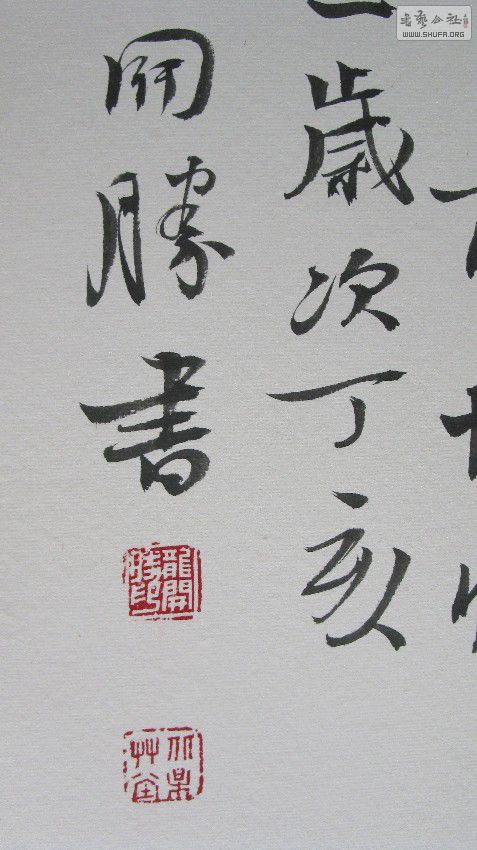 歲次丁亥
開勝書
龍開勝印
書藝公社
WWW.SHUFA.ORG